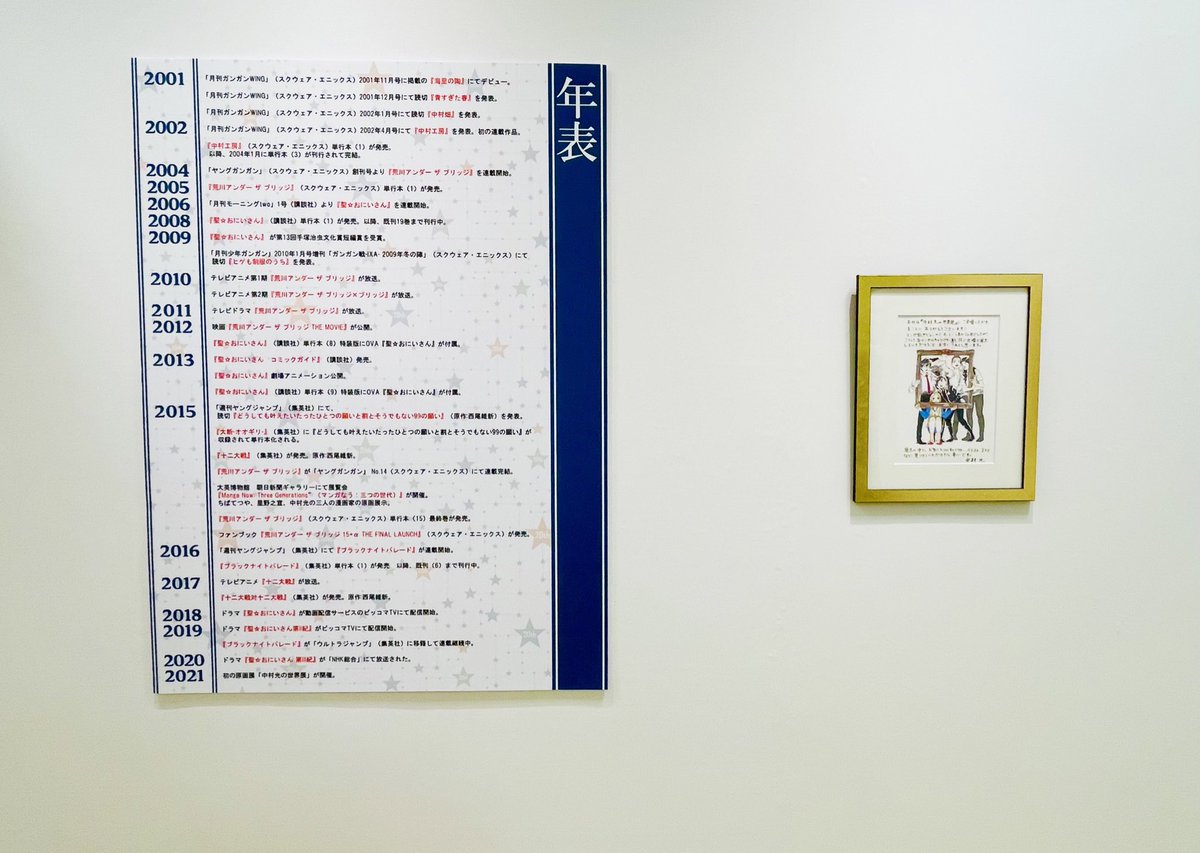 年表
2001
「月刊ガンガンWING」（スクウェア・エニックス）2001年11月号に掲載の『海里の陶』にてデビュー。
「月刊ガンガンWING」（スクウェア・エニックス）2001年12月号にて読切『青すぎた春』を発表。
「月刊ガンガンWING」（スクウェア・エニックス）2002年1月号にて読切『中村畑』を発表。
2002
「月刊ガンガンWING」（スクウェア・エニックス）2002年4月号にて『中村工房』を発表。初の連載作品。
『中村工房』（スクウェア・エニックス）単行本（1）が発売。
以降、2004年1月に単行本（3）が刊行されて完結。
2004
「ヤングガンガン」（スクウェア・エニックス）創刊号より『荒川アンダー ザ ブリッジ』を連載開始。
2005
『荒川アンダー ザ ブリッジ』（スクウェア・エニックス）単行本（1）が発売。
2006
「月刊モーニングtwo」1号（講談社）より『聖☆おにいさん』を連載開始。
2008
『聖☆おにいさん』（講談社）単行本（1）が発売。以降、既刊19巻まで刊行中。
2009
『聖☆おにいさん』が第13回手塚治虫文化賞短編賞を受賞。
「月刊少年ガンガン」2010年1月号増刊「ガンガン戦-IXA- 2009年冬の陣」（スクウェア・エニックス）にて
読切『ヒゲも制服のうち』を発表。
2010
テレビアニメ第1期『荒川アンダー ザ ブリッジ』が放送。
テレビアニメ第2期『荒川アンダー ザ ブリッジ×ブリッジ』が放送。
2011
テレビドラマ『荒川アンダー ザ ブリッジ』が放送。
2012
映画『荒川アンダー ザ ブリッジ THE MOVIE』が公開。
『聖☆おにいさん』（講談社）単行本（8）特装版にOVA『聖☆おにいさん』が付属。
2013
『聖☆おにいさん コミックガイド』（講談社）発売。
『聖☆おにいさん』劇場アニメーション公開。
『聖☆おにいさん』（講談社）単行本（9）特装版にOVA『聖☆おにいさん』が付属。
2015
「週刊ヤングジャンプ」（集英社）にて、
読切『どうしても叶えたいたったひとつの願いと割とそうでもない99の願い』（原作:西尾維新）を発表。
『大斬-オオギリ-』（集英社）に『どうしても叶えたいたったひとつの願いと割とそうでもない99の願い』が
収録されて単行本化される。
『十二大戦』（集英社）が発売。原作:西尾維新。
『荒川アンダー ザ ブリッジ』が「ヤングガンガン」 No.14（スクウェア・エニックス）にて連載完結。
大英博物館 朝日新聞ギャラリーにて展覧会
『Manga Now:Three Generations"（マンガなう：三つの世代）』が開催。
ちばてつや、星野之宣、中村光の三人の漫画家の原画展示。
『荒川アンダー ザ ブリッジ』（スクウェア・エニックス）単行本（15）最終巻が発売。
ファンブック『荒川アンダー ザ ブリッジ 15+α THE FINAL LAUNCH』（スクウェア・エニックス）が発売。
2016
「週刊ヤングジャンプ」（集英社）にて『ブラックナイトパレード』が連載開始。
『ブラックナイトパレード』（集英社）単行本（1）が発売 以降、既刊（6）まで刊行中。
2017
テレビアニメ『十二大戦』が放送。
『十二大戦対十二大戦』（集英社）が発売。原作:西尾維新。
2018
ドラマ『聖☆おにいさん』が動画配信サービスのピッコマTVにて配信開始。
2019
ドラマ『聖☆おにいさん第II紀』がピッコマTVにて配信開始。
『ブラックナイトパレード』が「ウルトラジャンプ」（集英社）に移籍して連載継続中。
2020
ドラマ『聖☆おにいさん 第III紀』が「NHK総合」にて放送された。
2021
初の原画展「中村光の世界展」が開催。